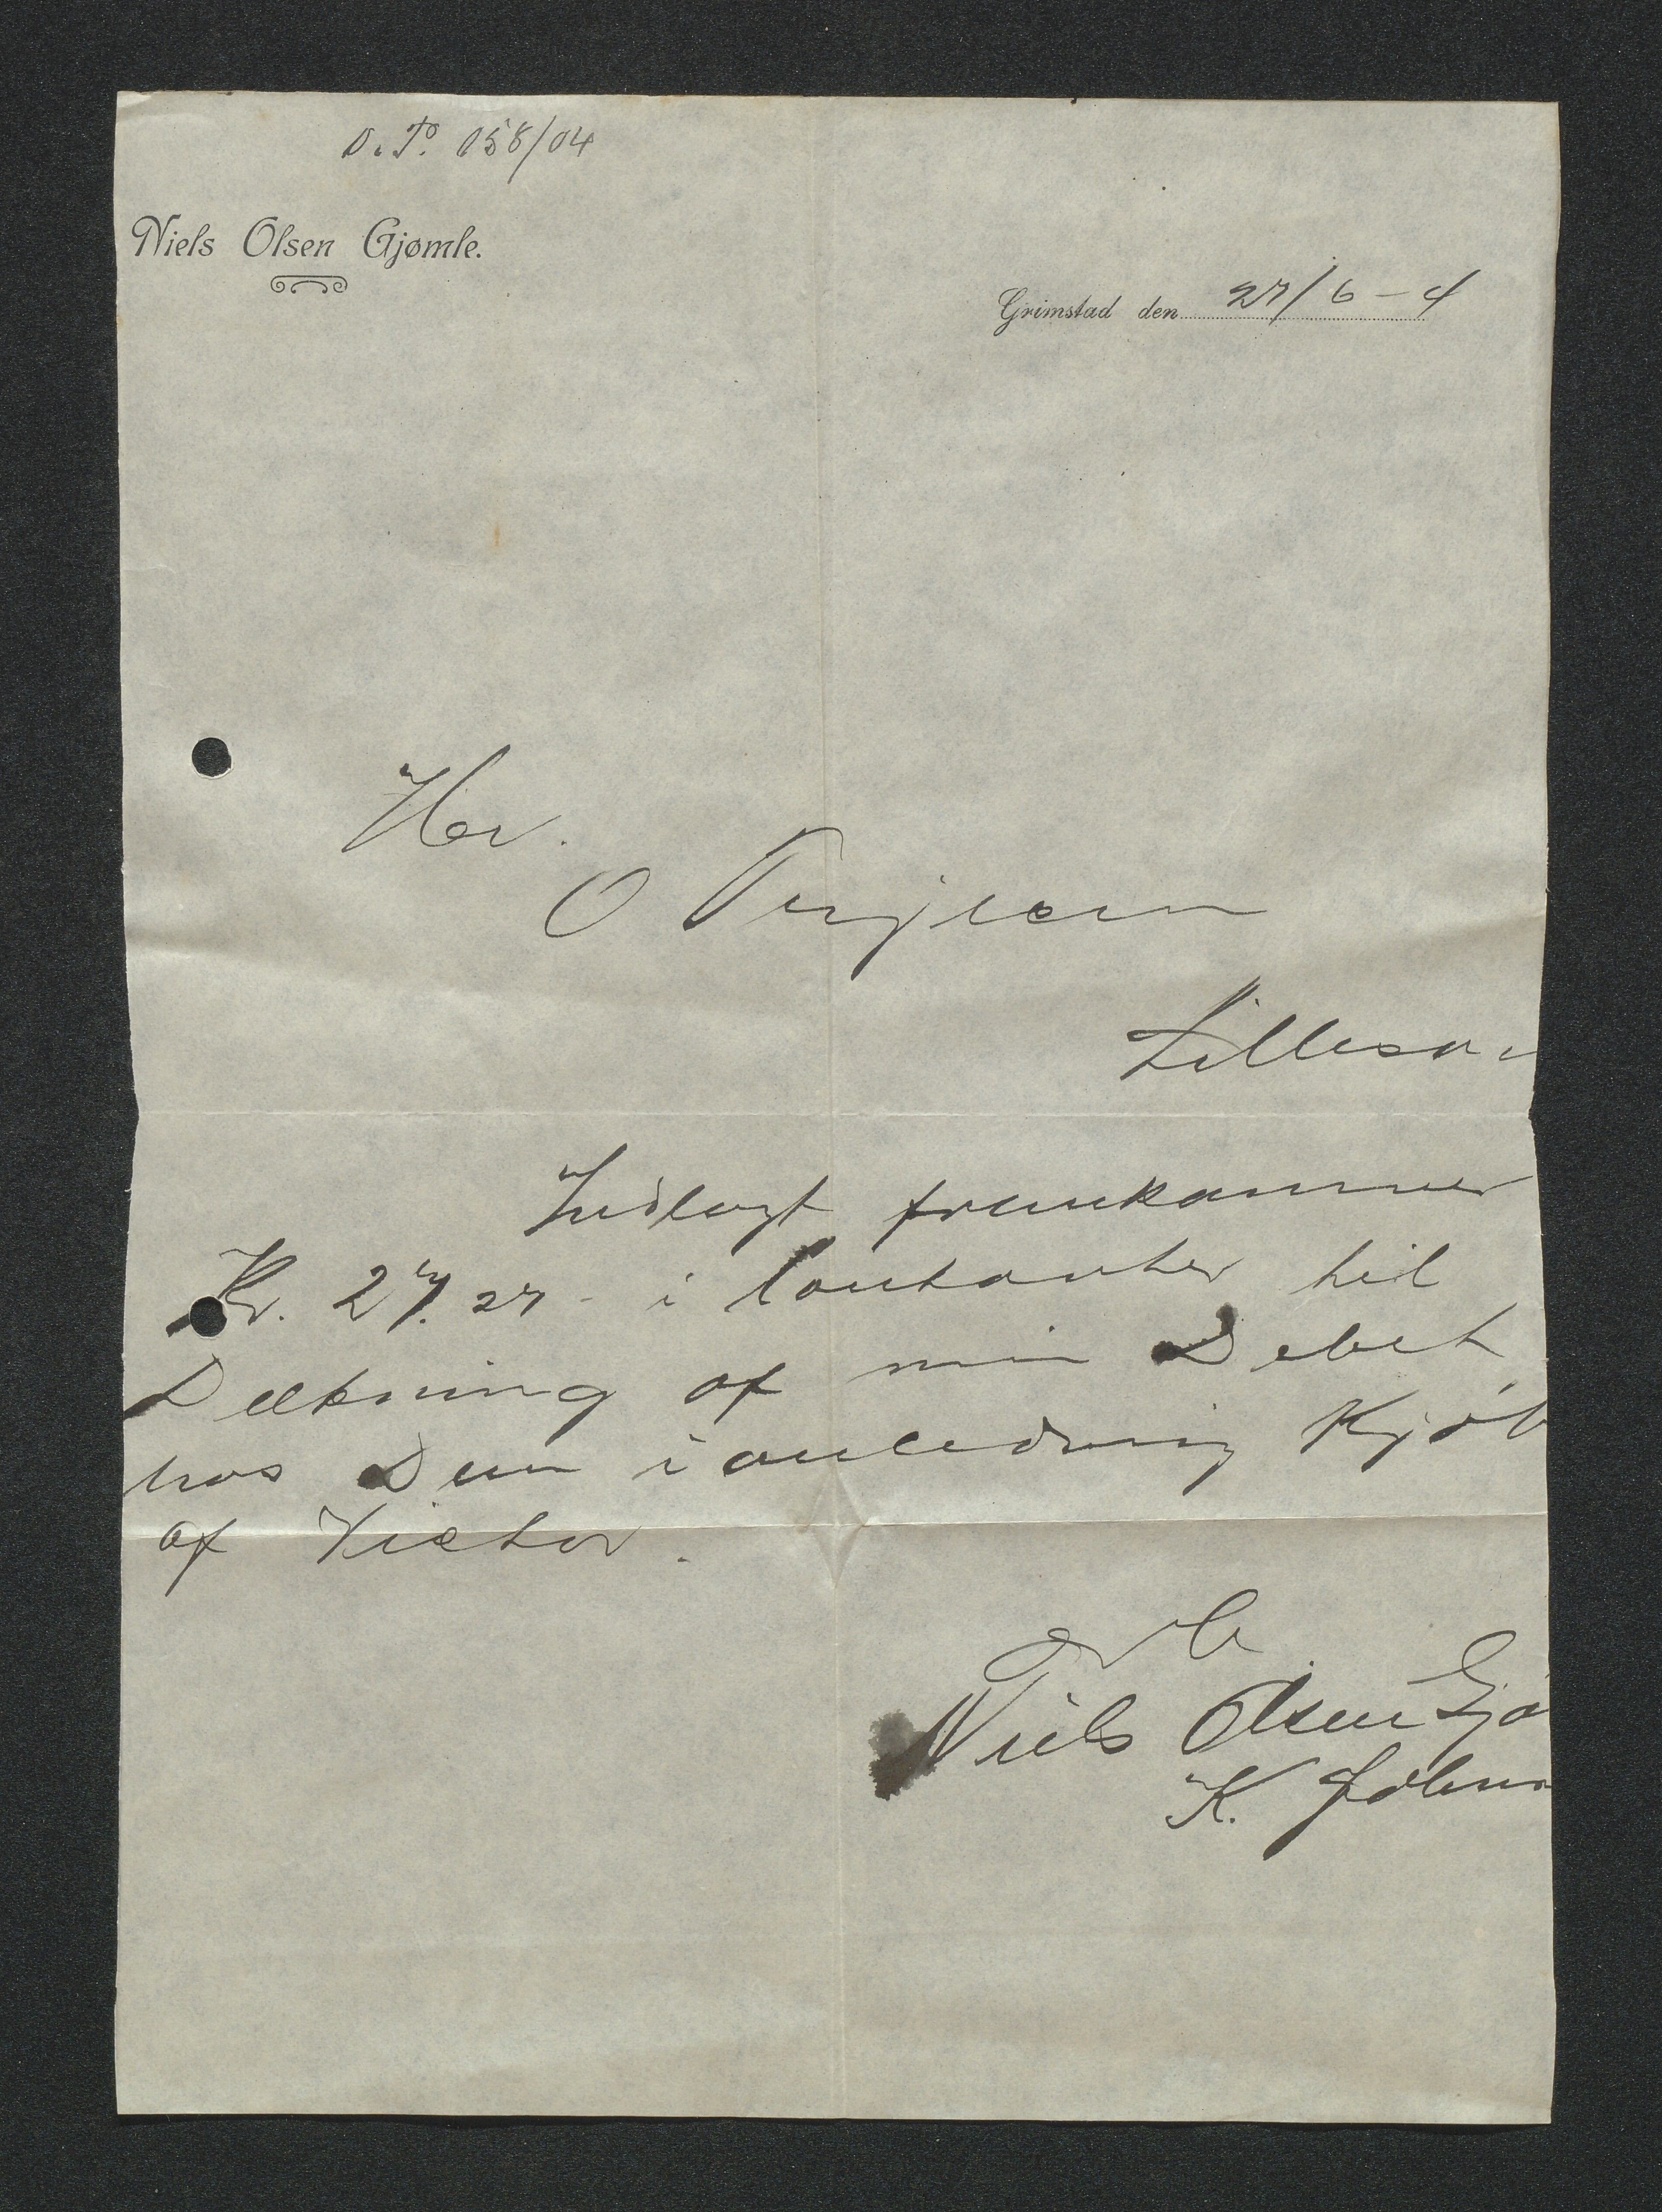 O. T. 158/04
Niels Olsen Gjømle.
Grimstad den 27/6-4
Hr.
O Terjesen
Lillesa
Indlagt fremkommer
Kr. 27.27 - i Contanter til
Dækning af min Debet
hos Dem i anledning Kjøb
af Victor.
Niels Olsen Gjø
K.